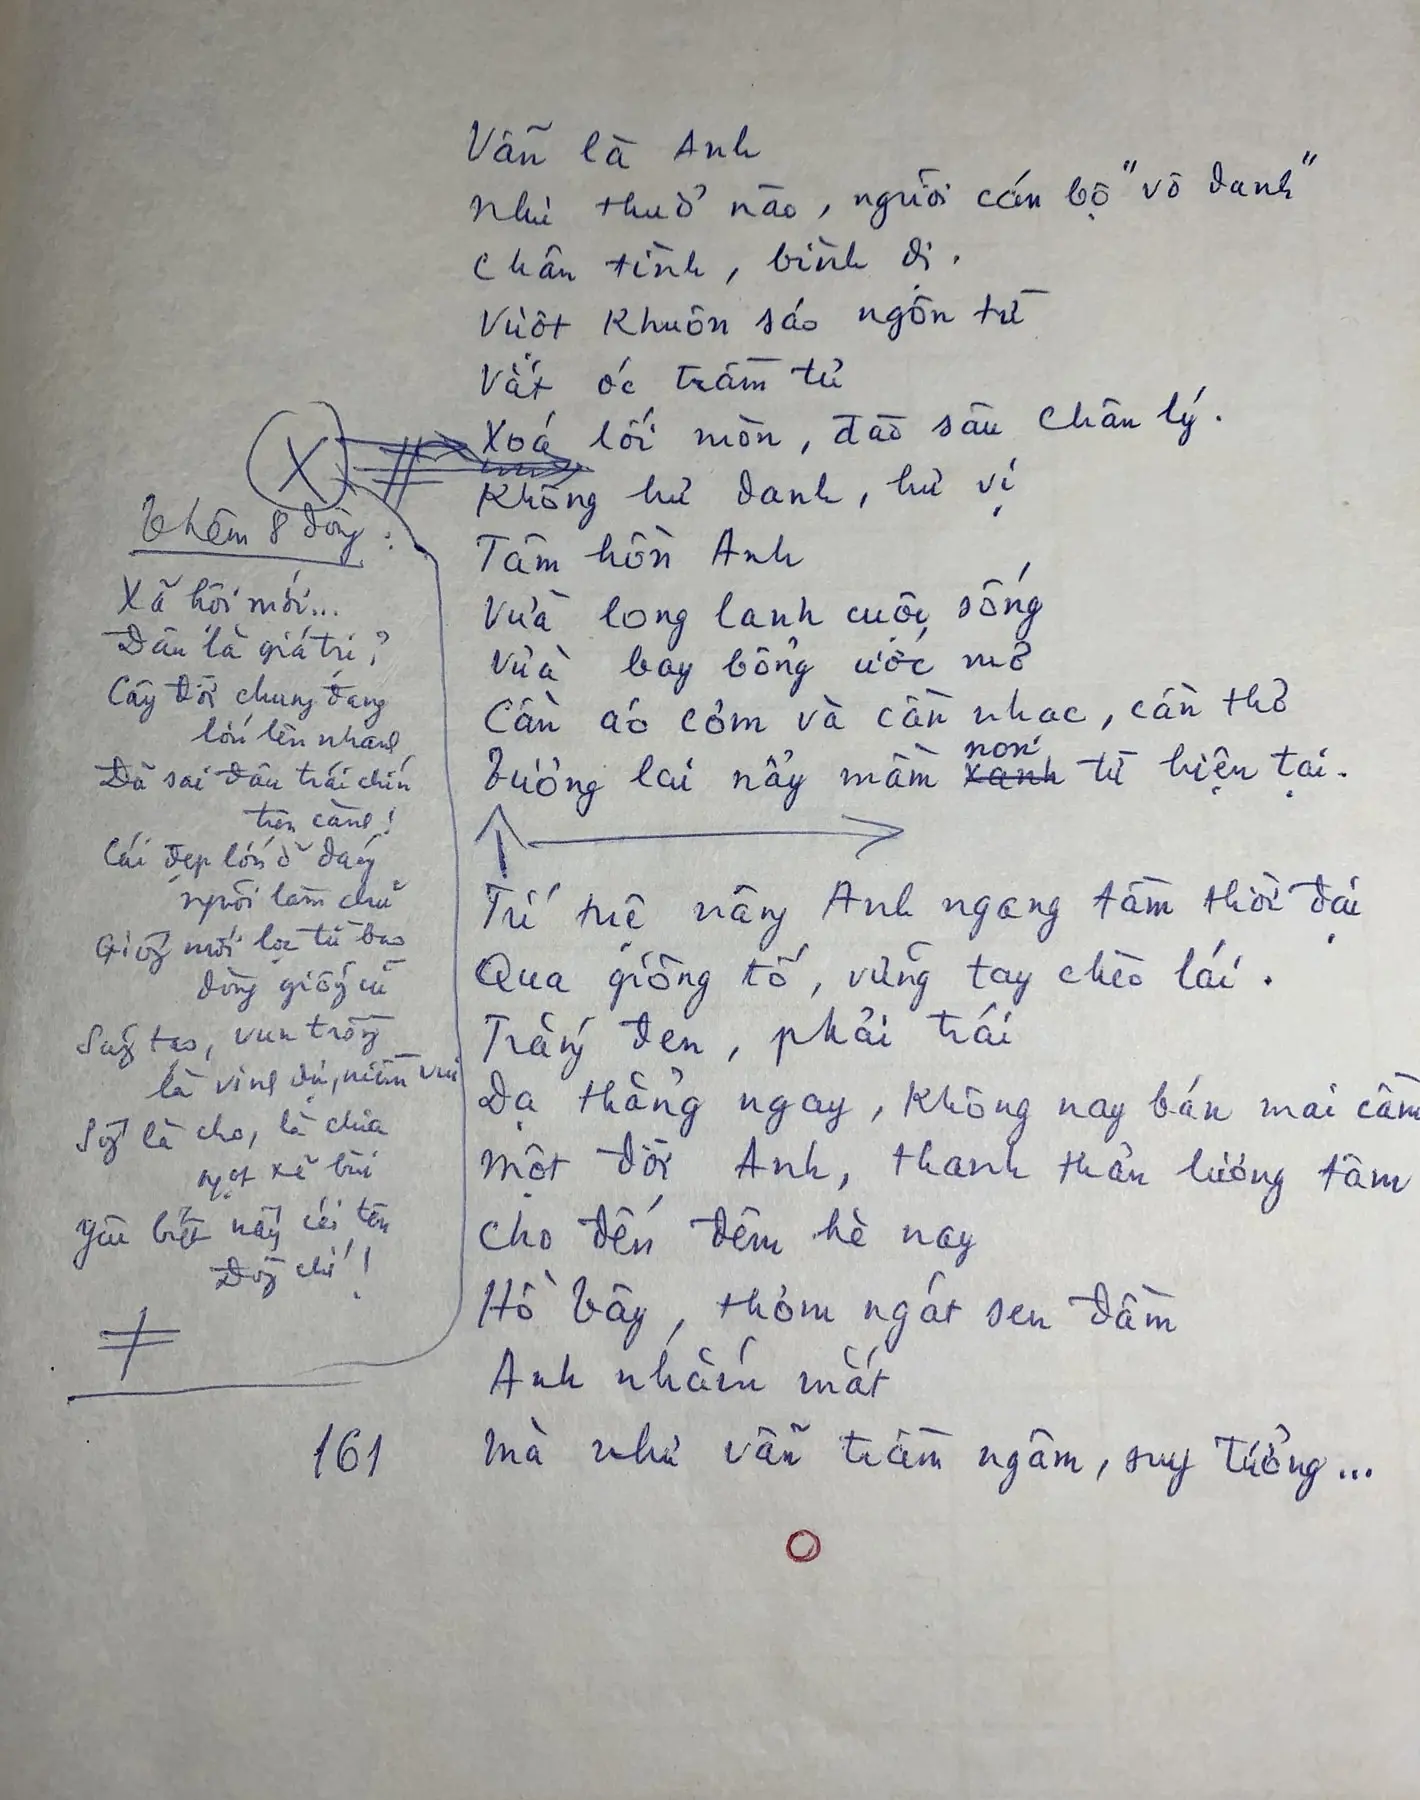 Vẫn là Anh
Như thuở nào, người cán bộ "vô danh"
Chân tình, bình dị.
Vượt khuôn sáo ngôn từ
Vắt óc trầm tư
Xoá lối mòn, đào sâu chân lý.
Không hư danh, hư vị
Tâm hồn Anh
Vừa long lanh cuộc sống
Vừa bay bổng ước mơ
Cần áo cơm và cần nhạc, cần thơ
Tương lai nẩy mầm xanh non từ hiện tại.
Trí tuệ nâng Anh ngang tầm thời đại
Qua giông tố, vững tay chèo lái.
Trắng đen, phải trái
Dạ thẳng ngay, không nay bán mai cầm
Một đời Anh, thanh thản lương tâm
Cho đến đêm hè nay
Hồ Tây, thơm ngát sen đầm
Anh nhắm mắt
Mà như vẫn trầm ngâm, suy tưởng...
X
Thêm 8 dòng:
Xã hội mới...
Đâu là giá trị?
Cây đời chung đang
lớn lên nhanh
Đã sai đâu trái chín
trên cành!
Cái đẹp lớn ở dáng
người làm chủ
Giống mới lọc từ bao
dòng giống cũ
Sáng tạo, vun trồng
là vinh dự, niềm vui
Sống là cho, là chia
ngọt xẻ bùi
Yêu biết mấy cái tên
Đồng chí!
161